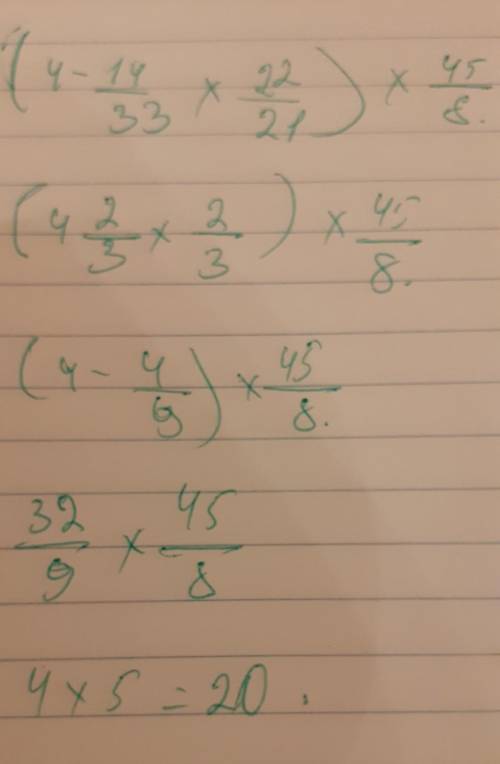 (4 - 14/33 × 22/21) × 45/8.
(4 2/3 × 2/3) × 45/8.
(4 - 4/9) × 45/8.
32/9 × 45/8
4 × 5 = 20.